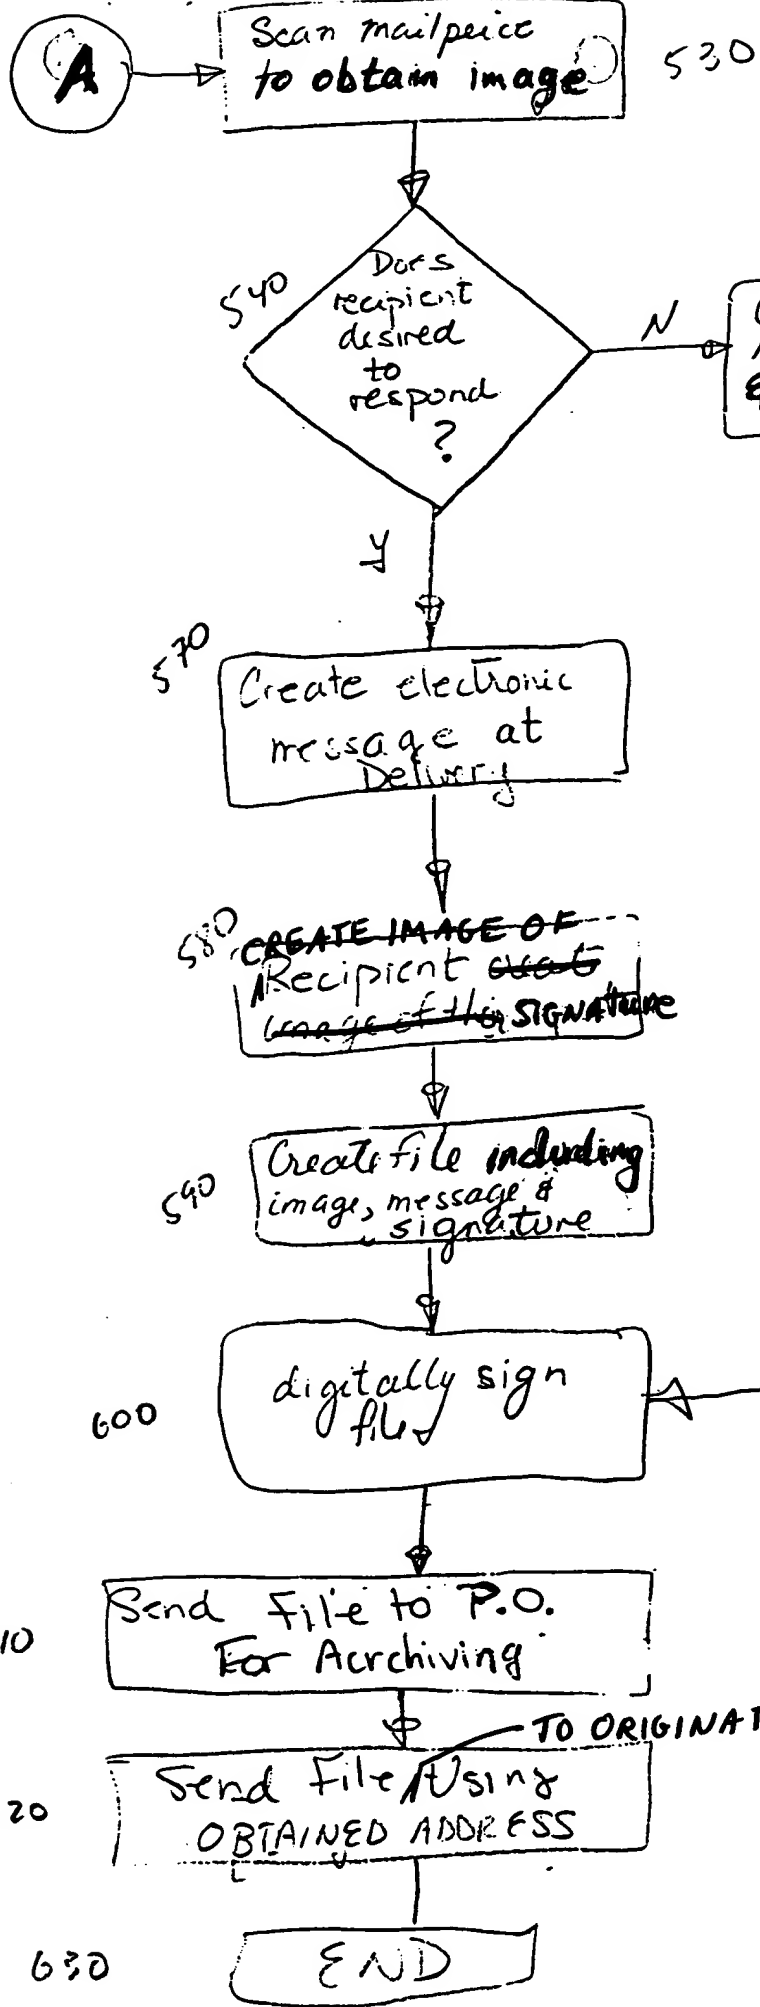 A
Scan mailpeice
to obtain image
530
540
Does
recipient
desired
to
respond
?
N
Y
570
Create electronic
message at
Delivery
580
CREATE IMAGE OF
Recipient
image of this SIGNATURE
590
Create file including
image, message &
signature
600
digitally sign
file
10
Send File to P.O.
For Acrchiving
TO ORIGINAT
20
Send File Using
OBTAINED ADDRESS
630
END